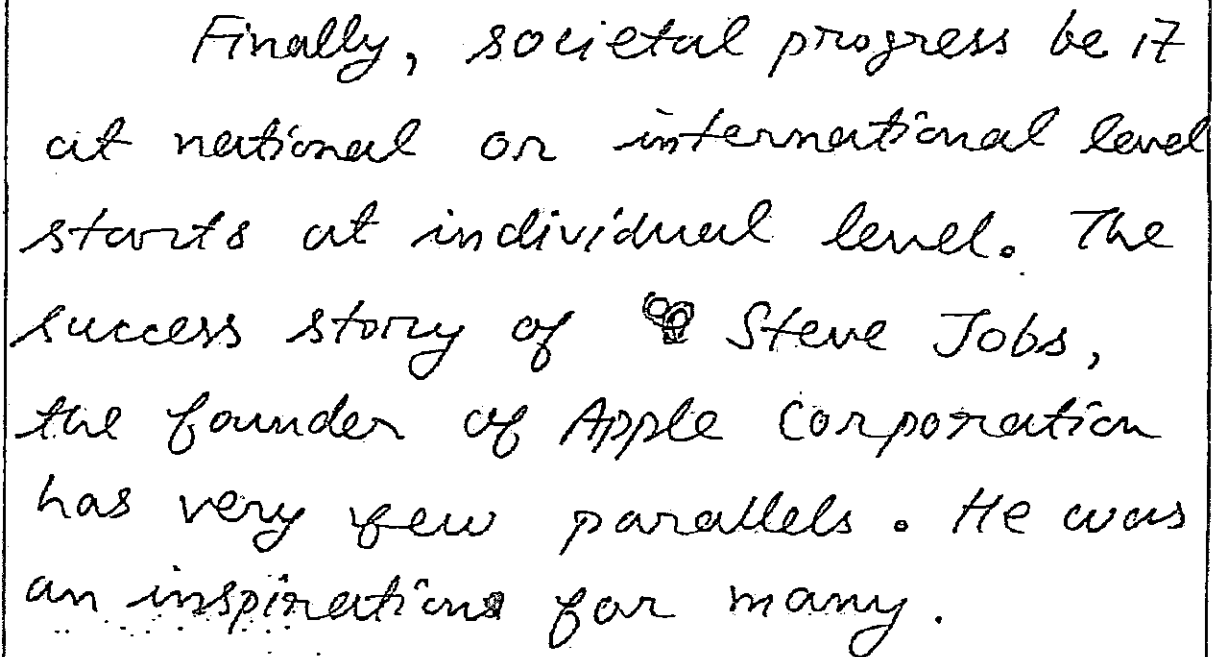 Finally, societal progress be it
at national or international level
starts at individual level. The
success story of Steve Jobs,
the founder of Apple Corporation
has very few parallels. He was
an inspiration for many.